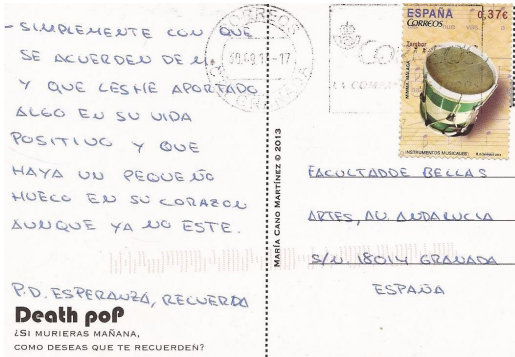 - SIMPLEMENTE CON QUE
SE ACUERDEN DE MI
Y QUE LES HE APORTADO
ALGO EN SU VIDA
POSITIVO Y QUE
HAYA UN PEQUEÑO
HUECO EN SU CORAZON
AUNQUE YA NO ESTE.
P.D. ESPERANZA, RECUERDA
Death poP
¿SI MURIERAS MAÑANA,
COMO DESEAS QUE TE RECUERDEN?
MARÍA CANO MARTÍNEZ © 2013
CORREOS
GRANADA
ESPAÑA 0,37€
CORREOS
Tambor
INSTRUMENTOS MUSICALES
FACULTAD DE BELLAS
ARTES, AV. ANDALUCIA
S/N. 18014 GRANADA
ESPAÑA